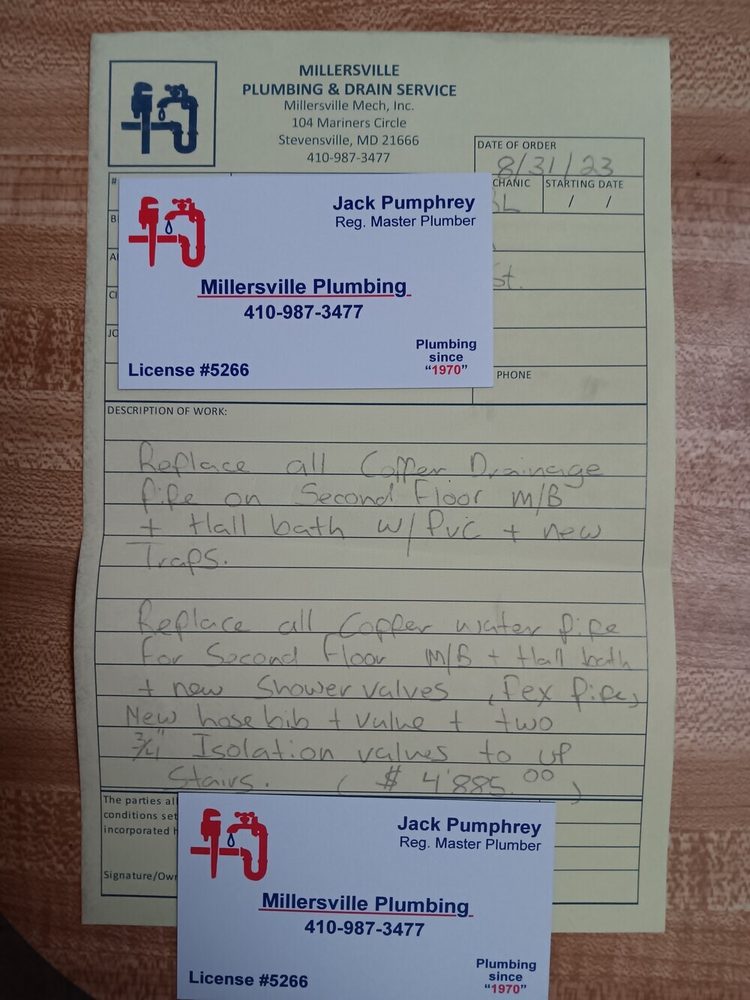 MILLERSVILLE
PLUMBING & DRAIN SERVICE
Millersville Mech, Inc.
104 Mariners Circle
Stevensville, MD 21666
410-987-3477
DATE OF ORDER
8/31/23
CHANIC
STARTING DATE
/ /
St.
PHONE
Jack Pumphrey
Reg. Master Plumber
Millersville Plumbing
410-987-3477
Plumbing
since
"1970"
License #5266
DESCRIPTION OF WORK:
Replace all Copper Drainage
Pipe on Second Floor M/B
+ Hall bath w/ PVC + new
Traps.
Replace all Copper water pipe
For Second Floor M/B + Hall bath
+ new Shower valves, (Pex pipe)
New hose bib + value + two
3/4" Isolation valves to up
Stairs. ($ 4'885.00)
The parties al
conditions set
incorporated h
Signature/Own
Jack Pumphrey
Reg. Master Plumber
Millersville Plumbing
410-987-3477
Plumbing
since
"1970"
License #5266